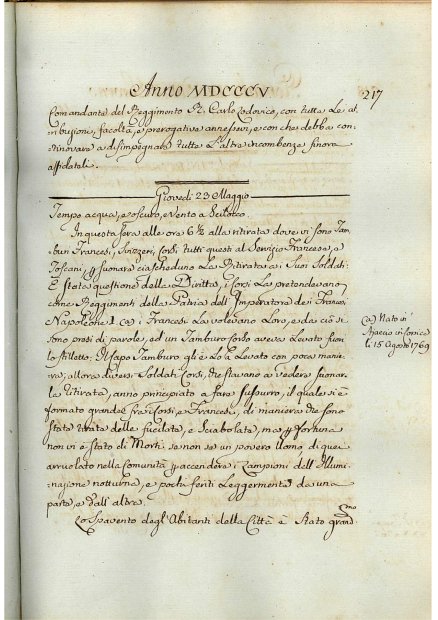 Anno MDCCCV
217
Comandante del Reggimento R. Carlo Lodovico, con tutte Le at
tribusioni, facoltà, e prerogative annessevi, e con che debba con
tinovare a disimpegnare tutte L'altre incombenze sinora
affidateli.
Giovedì 23 Maggio
Tempo acqua, e oscuro, e Vento a Scilocco
In questa sera alle ore 6½ alla ritirata dove vi sono Tam
buri Francesi, Suizzeri, Corsi tutti questi al Servizio Francese, e
Toscani p suonare ciascheduno La Ritirata ai Suoi Soldati
È stata questione della Diritta, i Corsi La pretendevano
come Reggimenti della Patria dell Imperatore de Francesi
Napoleone I (a) i Francesi La volevano Loro, e da ciò si
sono presi di parole, ed un Tamburo Corso aveva Levato fuori
lo stiletto: Il Capo Tamburo gli è Lo à Levato con poca manie
ra, allora diversi Soldati Corsi, che stavano a vedere suonar
la ritirata, anno principiato a fare sussurro, il quale si è
formato grande fra i Corsi e Francesi, di maniera che sono
state tirate delle fucilate, e Sciabolate, ma p fortuna
non vi è stato di Morti se non se un povero Uomo di quei
arruolato nella Comunità p accendere i Lampioni dell'Illumi
nazione notturna, e pochi feriti Leggermente da una
parte, e dall'altra.
Lo Spavento degl'Abitanti della Città è Stato grandmo
(a) Nato in
Ajaccio in Corsica
li 15 Agosto 1769